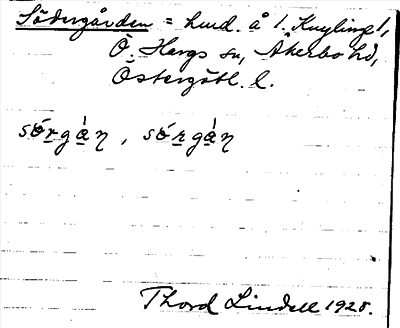 Södergården = hmd. å 1. Knylinge 1,
Ö. Hargs sn, Åkerbo hd,
Östergötl. l.
sórgàn, sórgàn
Thord Lindell 1928.